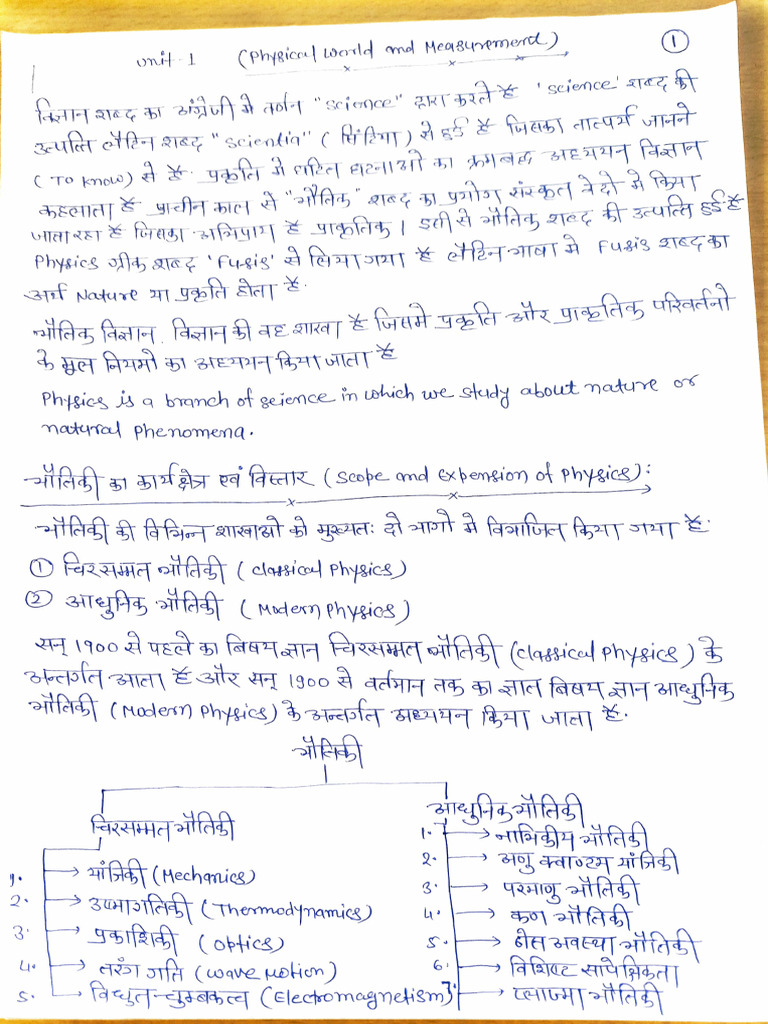 Unit-1 (Physical World and Measurement) 1
विज्ञान शब्द का अंग्रेजी मे वर्णन "science" द्वारा करते है 'science' शब्द की
उत्पत्ति लैटिन शब्द "scientia" ( सिंटिया ) से हुई है जिसका तात्पर्य जानने
(To Know) से है. प्रकृति मे घटित घटनाओ का क्रमबद्ध अध्ययन विज्ञान
कहलाता है प्राचीन काल से "भौतिक" शब्द का प्रयोग संस्कृत वेदो मे किया
जाता रहा है जिसका अभिप्राय है प्राकृतिक। इसी से भौतिक शब्द की उत्पत्ति हुई है
Physics ग्रीक शब्द 'Fusis' से लिया गया है लैटिन भाषा मे Fusis शब्द का
अर्थ Nature या प्रकृति होता है.
भौतिक विज्ञान, विज्ञान की वह शाखा है जिसमे प्रकृति और प्राकृतिक परिवर्तनो
के मूल नियमो का अध्ययन किया जाता है
Physics is a branch of science in which we study about nature or
natural phenomena.
भौतिकी का कार्यक्षेत्र एवं विस्तार (Scope and Expension of Physics):
भौतिकी की विभिन्न शाखाओ को मुख्यतः दो भागो मे विभाजित किया गया है.
① चिरसम्मत भौतिकी (Classical Physics)
② आधुनिक भौतिकी (Modern Physics)
सन् 1900 से पहले का विषय ज्ञान चिरसम्मत भौतिकी (Classical Physics) के
अन्तर्गत आता है और सन् 1900 से वर्तमान तक का ज्ञात विषय ज्ञान आधुनिक
भौतिकी (Modern Physics) के अन्तर्गत अध्ययन किया जाता है.
भौतिकी
चिरसम्मत भौतिकी
1. यांत्रिकी (Mechanics)
2. उष्मागतिकी (Thermodynamics)
3. प्रकाशिकी (Optics)
4. तरंग गति (Wave Motion)
5. विधुत-चुम्बकत्व (Electromagnetism)
आधुनिक भौतिकी
1. नाभिकीय भौतिकी
2. अणु क्वाण्टम यांत्रिकी
3. परमाणु भौतिकी
4. कण भौतिकी
5. ठोस अवस्था भौतिकी
6. विशिष्ट सापेक्षिकता
7. प्लाज्मा भौतिकी